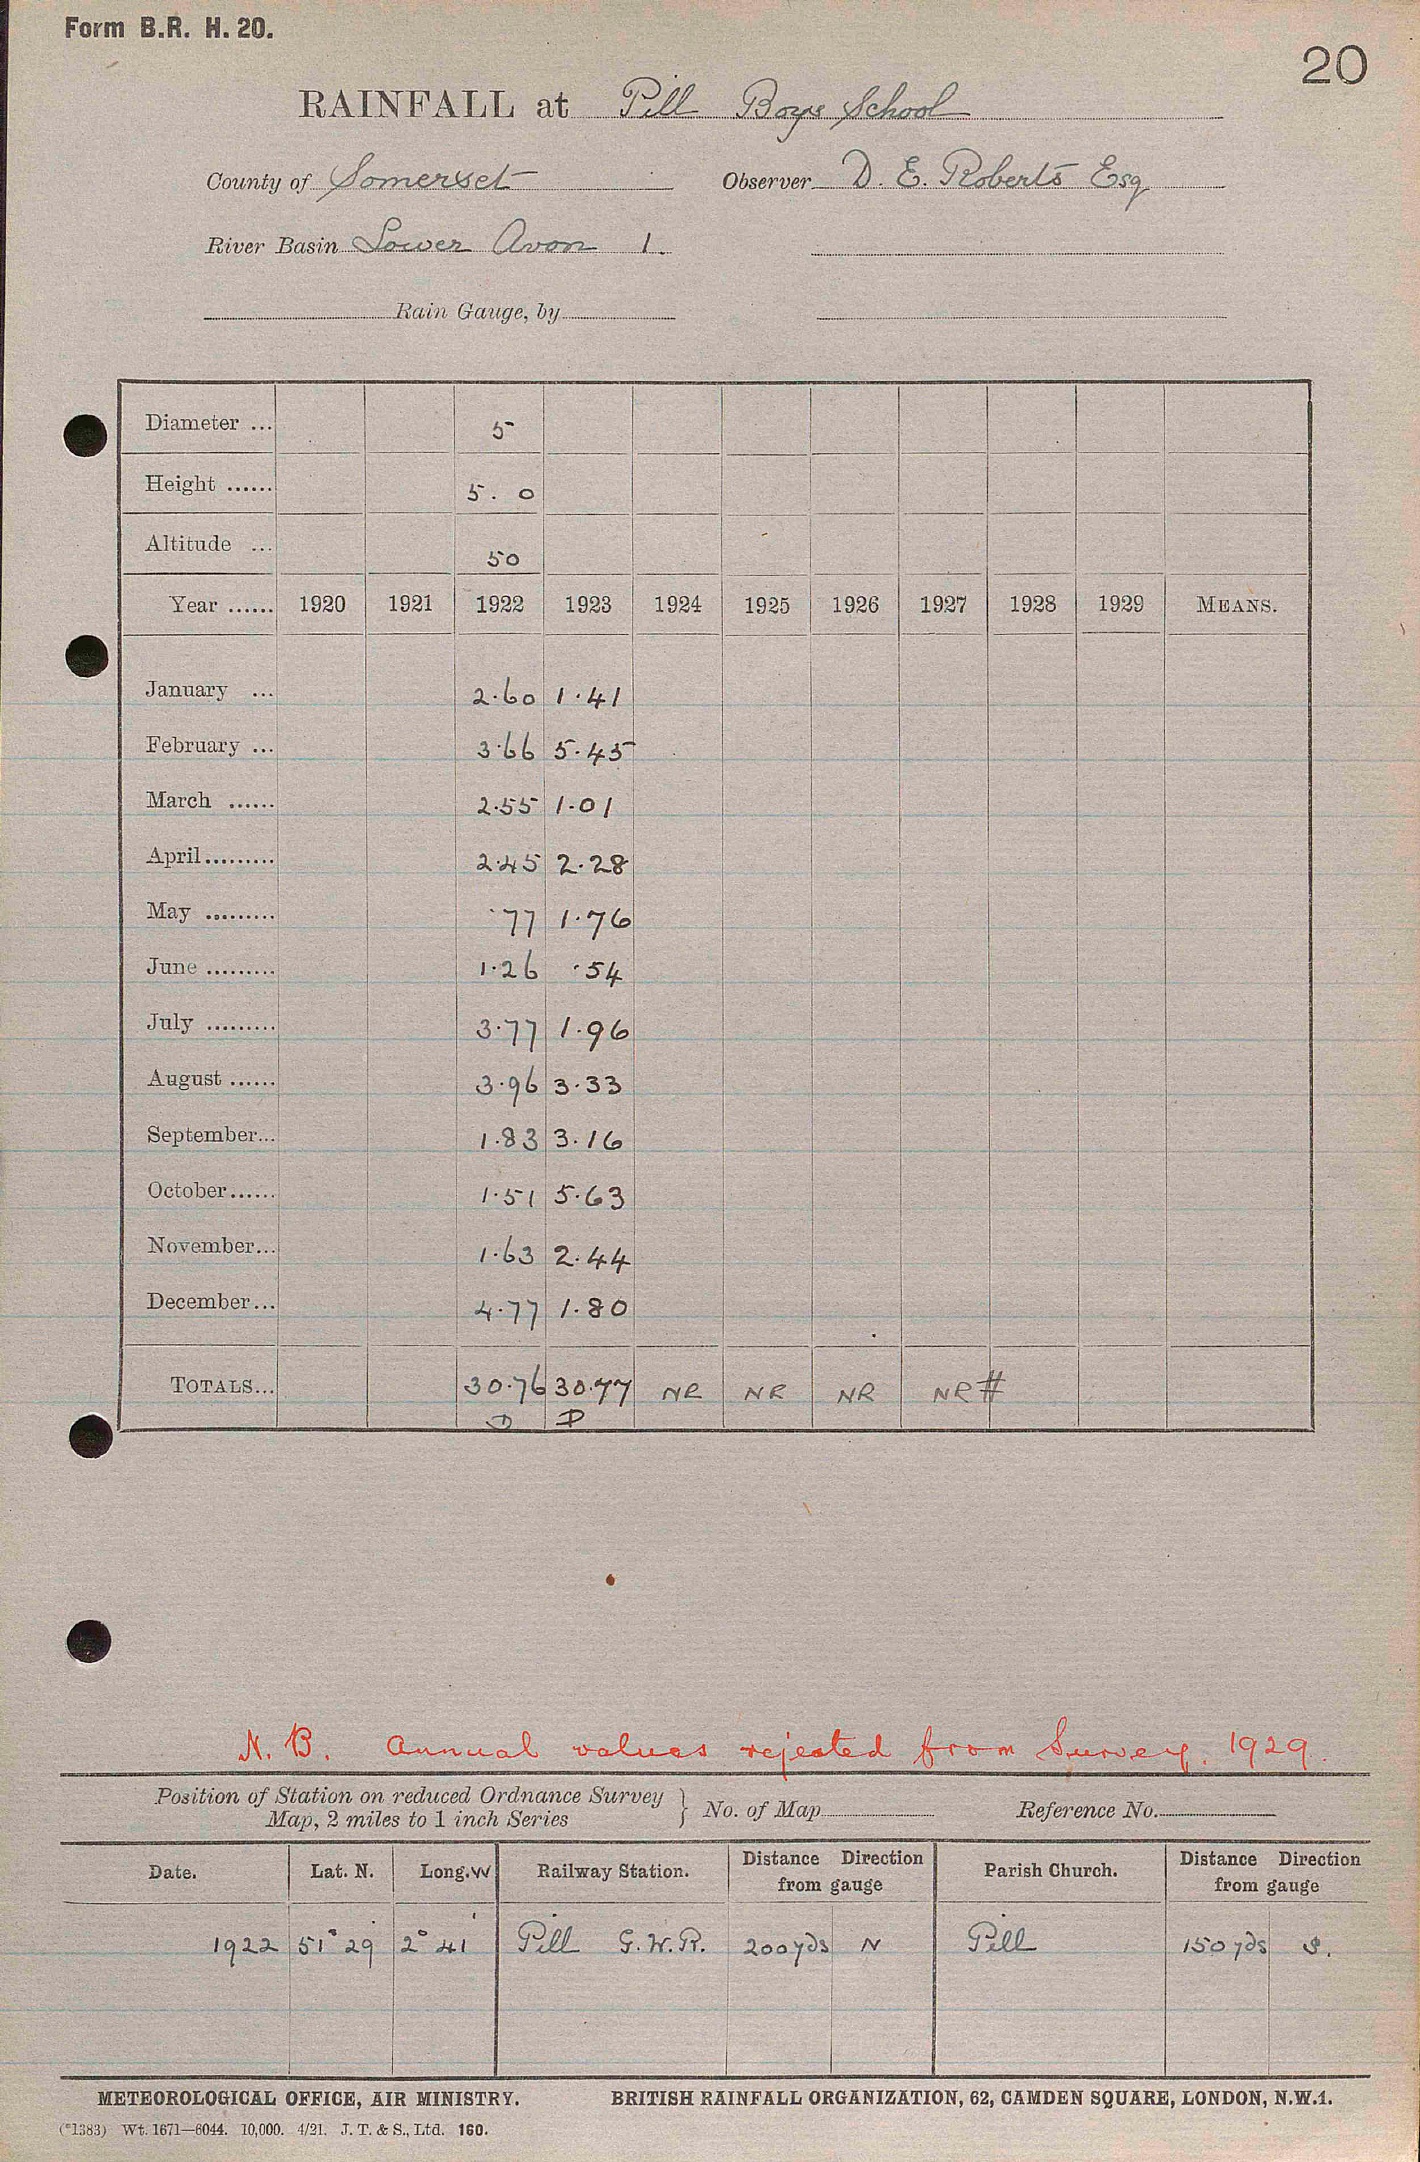 Form B.R. H. 20.
20
RAINFALL at Pill Boys School
County of Somerset Observer D. E. Roberts Esq
River Basin Lower Avon 1.
Rain Gauge, by
Diameter ... 5
Height ...... 5. 0
Altitude ... 50
Year ...... 1920 1921 1922 1923 1924 1925 1926 1927 1928 1929 MEANS.
January ... 2.60 1.41
February ... 3.66 5.45
March ...... 2.55 1.01
April......... 2.45 2.28
May ......... .77 1.76
June ......... 1.26 .54
July ......... 3.77 1.96
August ...... 3.96 3.33
September... 1.83 3.16
October...... 1.51 5.63
November... 1.63 2.44
December... 4.77 1.80
TOTALS... 30.76 30.77 NR NR NR NR #
D D
N.B. Annual values rejected from Survey. 1929.
Position of Station on reduced Ordnance Survey
Map, 2 miles to 1 inch Series } No. of Map Reference No.
Date. Lat. N. Long. W Railway Station. Distance Direction from gauge Parish Church. Distance Direction from gauge
1922 51° 29' 2° 41' Pill G.W.R. 200 yds N Pill 150 yds S.
METEOROLOGICAL OFFICE, AIR MINISTRY. BRITISH RAINFALL ORGANIZATION, 62, CAMDEN SQUARE, LONDON, N.W.1.
(*1383) Wt. 1671—6044. 10,000. 4/21. J. T. & S., Ltd. 160.